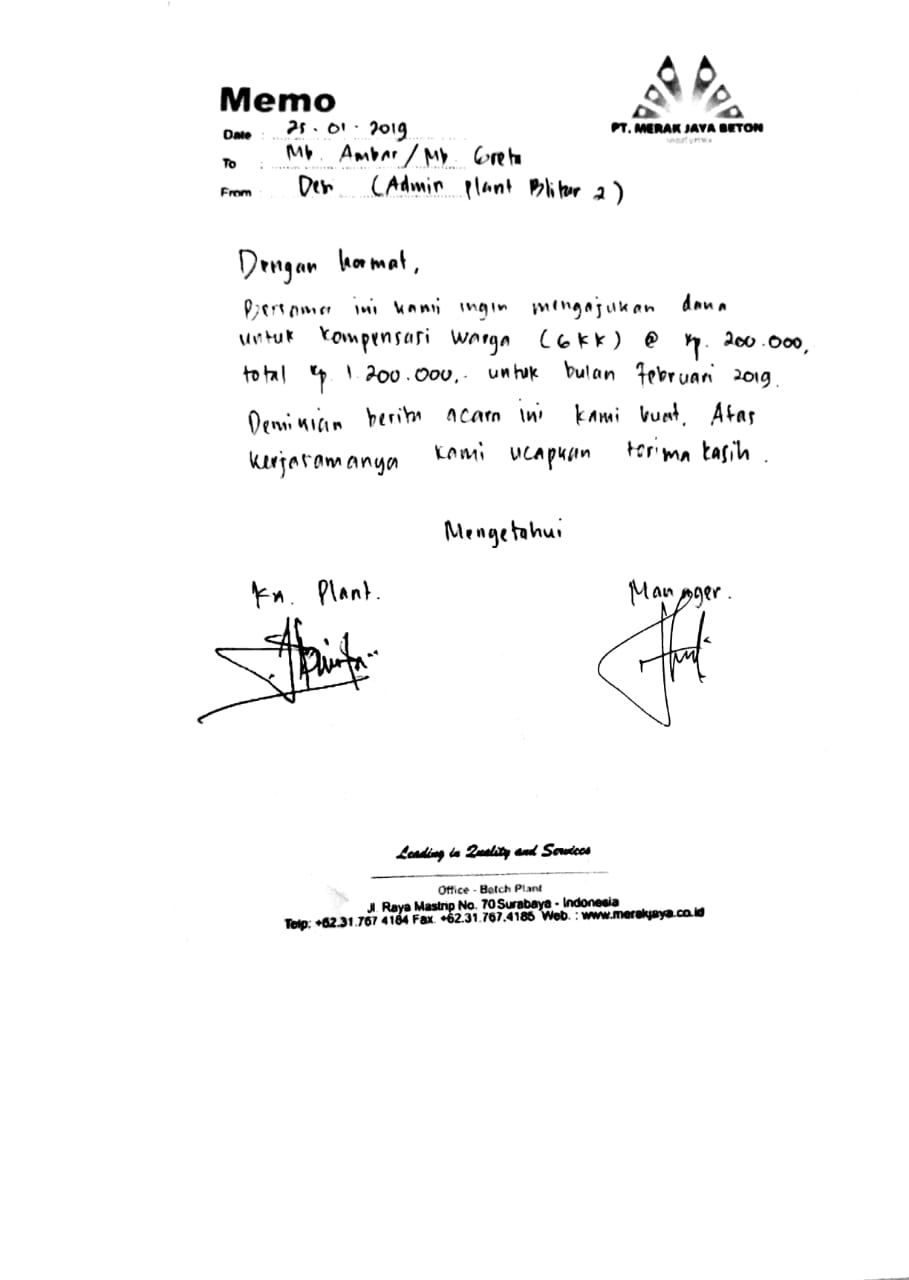 Memo
PT. MERAK JAYA BETON
Date : 25 . 01 . 2019
To : Mb. Ambar / Mb. Greta
From : (Admin Plant Blitar 2)
Dengan hormat,
Bersama ini kami ingin mengajukan dana
untuk kompensasi warga (6 KK) @ Rp. 200.000,
total Rp. 1.200.000,- untuk bulan Februari 2019.
Demikian berita acara ini kami buat. Atas
kerjasamanya kami ucapkan terima kasih.
Mengetahui
Ka. Plant. Manager.
Leading in Quality and Services
Office - Batch Plant
Jl. Raya Mastrip No. 70 Surabaya - Indonesia
Telp: +62.31.767 4184 Fax. +62.31.767.4185 Web. : www.merakjaya.co.id